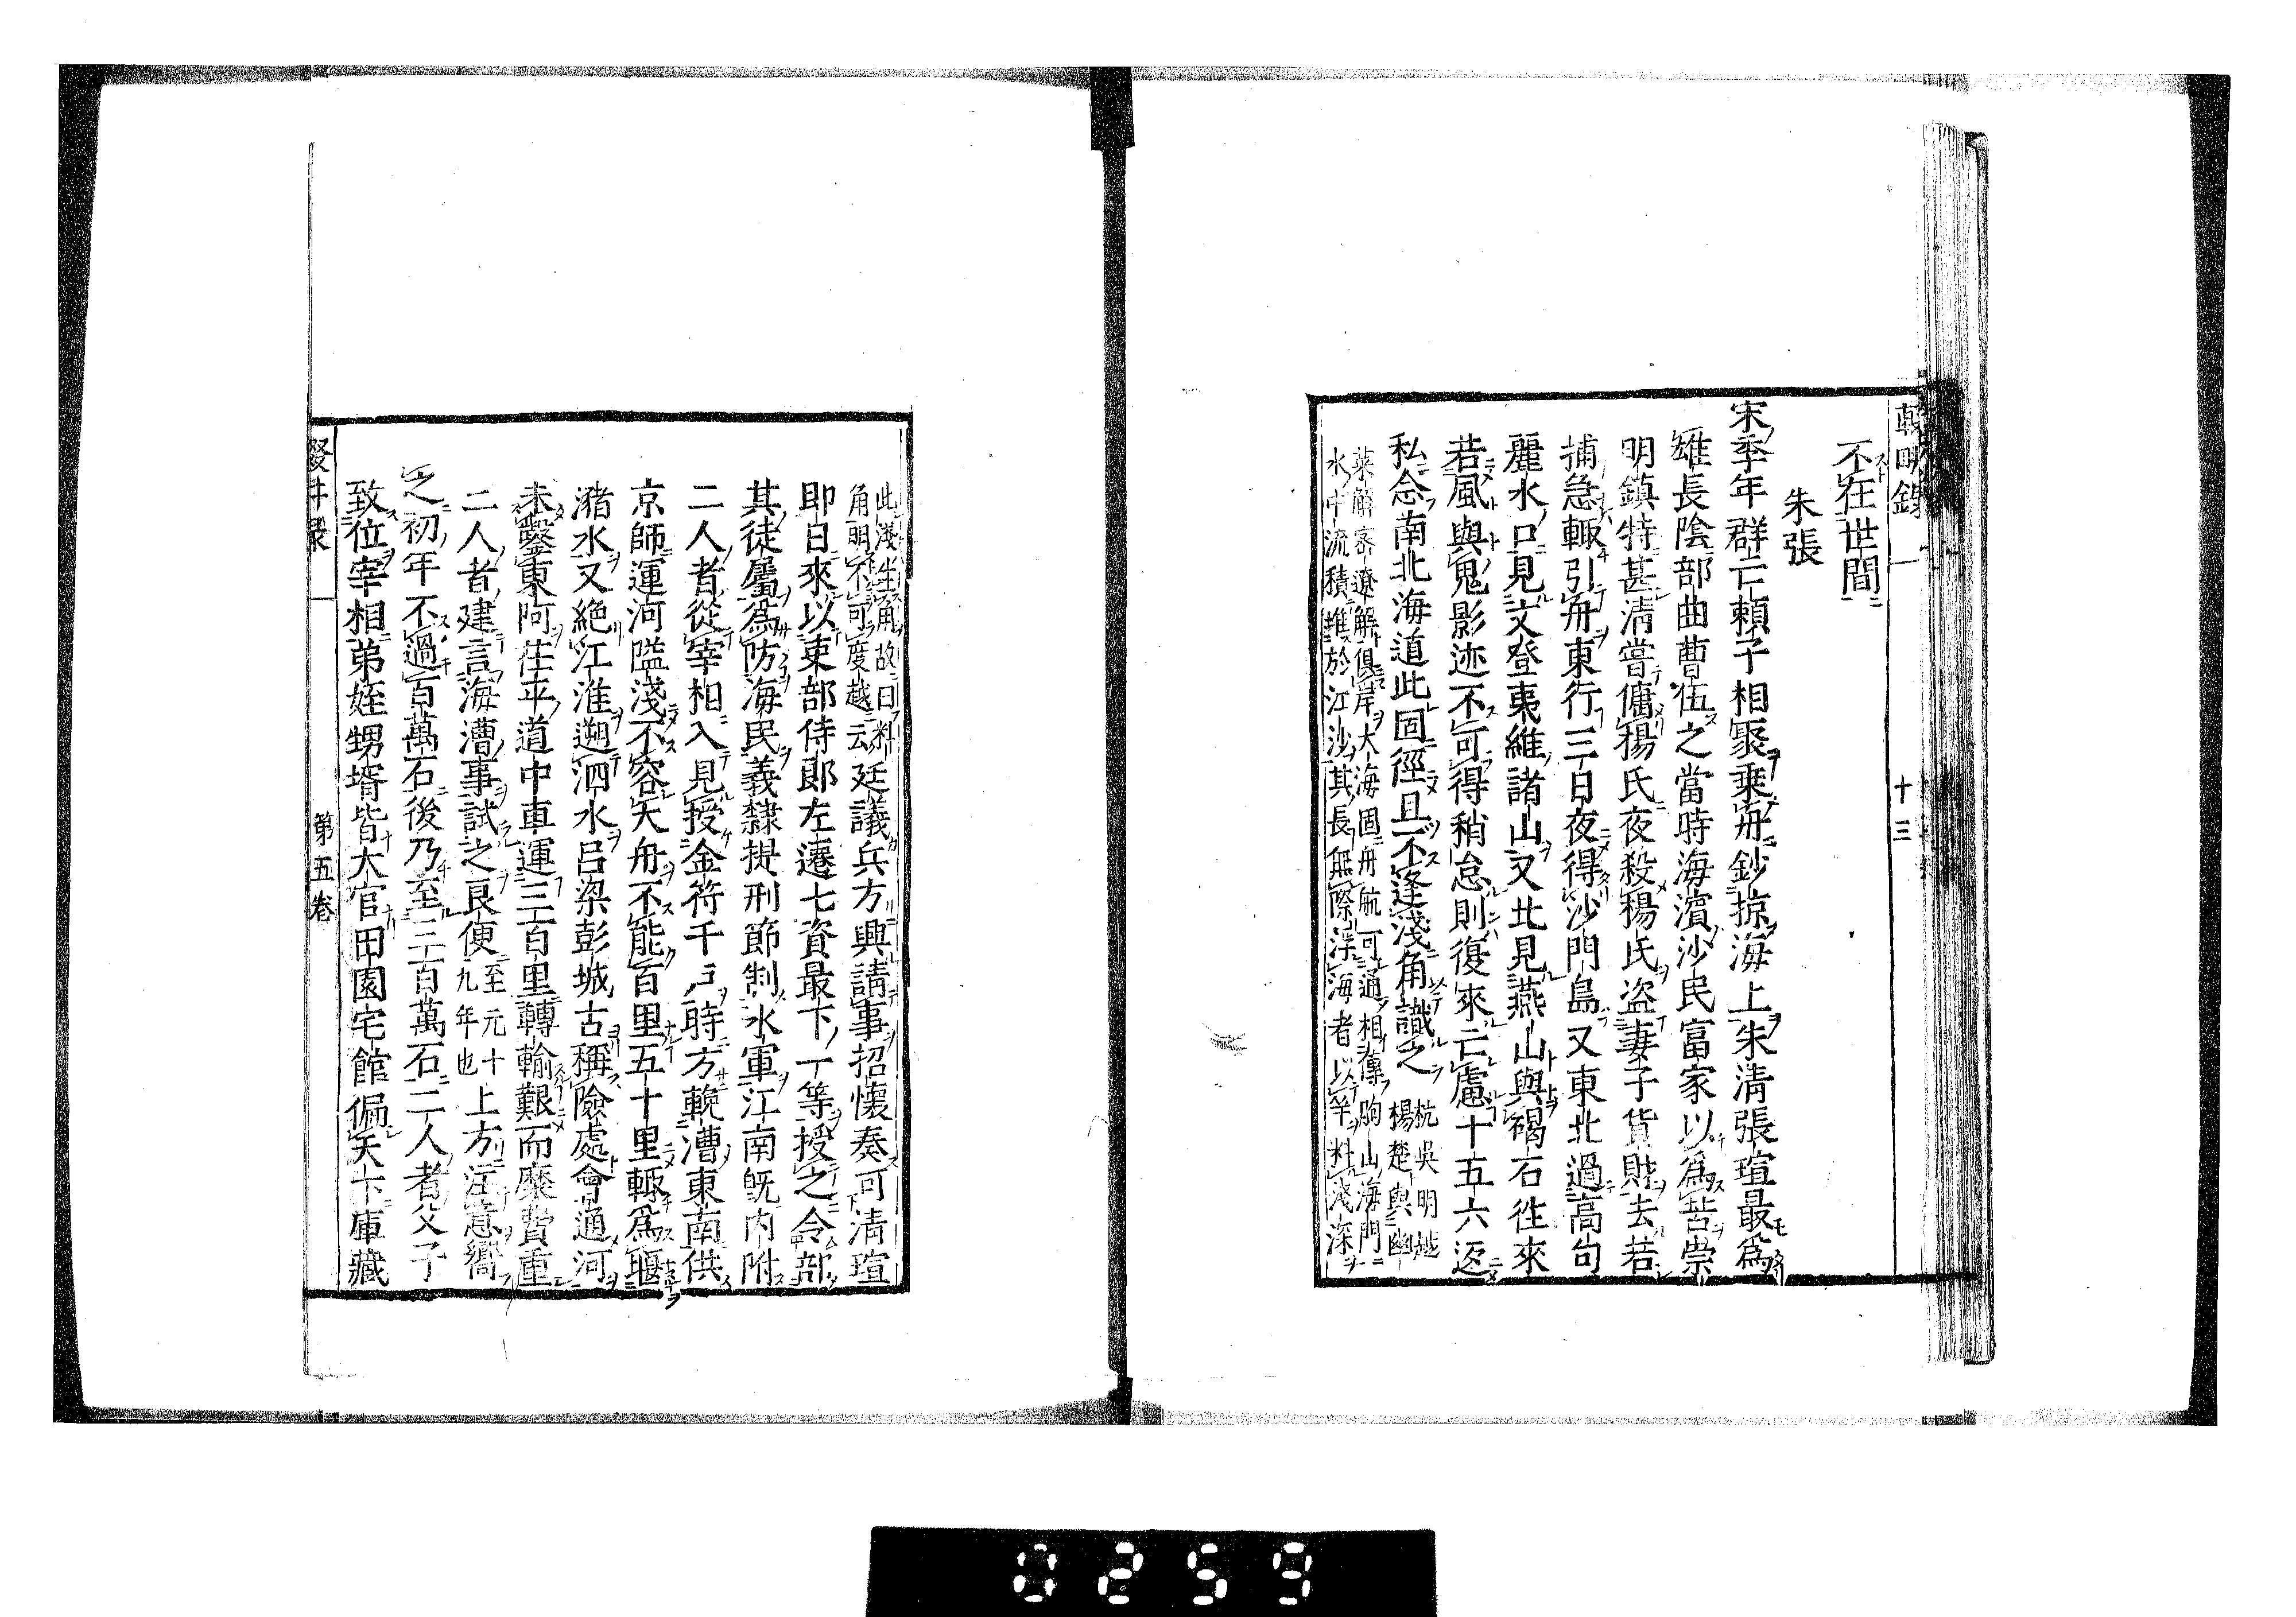 輟畊錄 十三
不在世間
朱張
宋季年群亡賴子相聚乘舟鈔掠海上朱清張瑄最爲
雄長陰部曲曹伍之當時海濱沙民富家以爲苦崇
明鎮特甚清嘗傭楊氏夜殺楊氏盗妻子貨財去若
捕急輙引舟東行三日夜得沙門島又東北過高句
麗水口見文登夷維諸山又北見燕山與碣石徃來
若風與鬼影迹不可得稍怠則復來亡慮十五六返
私念南北海道此固徑且不逢淺角識之
杭吳明越
楊楚與幽
萊解密遼解俱岸大海固舟航可通相傳朐山海門
水中流積堆於江沙其長無際浮海者以竿料淺深
此淺生角故曰料
角明不可度越云
廷議兵方興請事招懷奏可清瑄
即日來以吏部侍郎左遷七資最下一等授之令部
其徒屬爲防海民義隸提刑節制水軍江南旣内附
二人者從宰相入見授金符千戸時方輓漕東南供
京師運河隘淺不容大舟不能百里五十里輙爲堰
瀦水又絶江淮遡泗水呂梁彭城古稱險處會通河
未鑿東阿茌平道中車運三百里轉輸艱而糜費重
二人者建言海漕事試之良便
至元十
九年也
上方注意嚮
之初年不過百萬石後乃至三百萬石二人者父子
致位宰相弟姪甥壻皆大官田園宅館徧天下庫藏
輟畊録 第五卷
0259